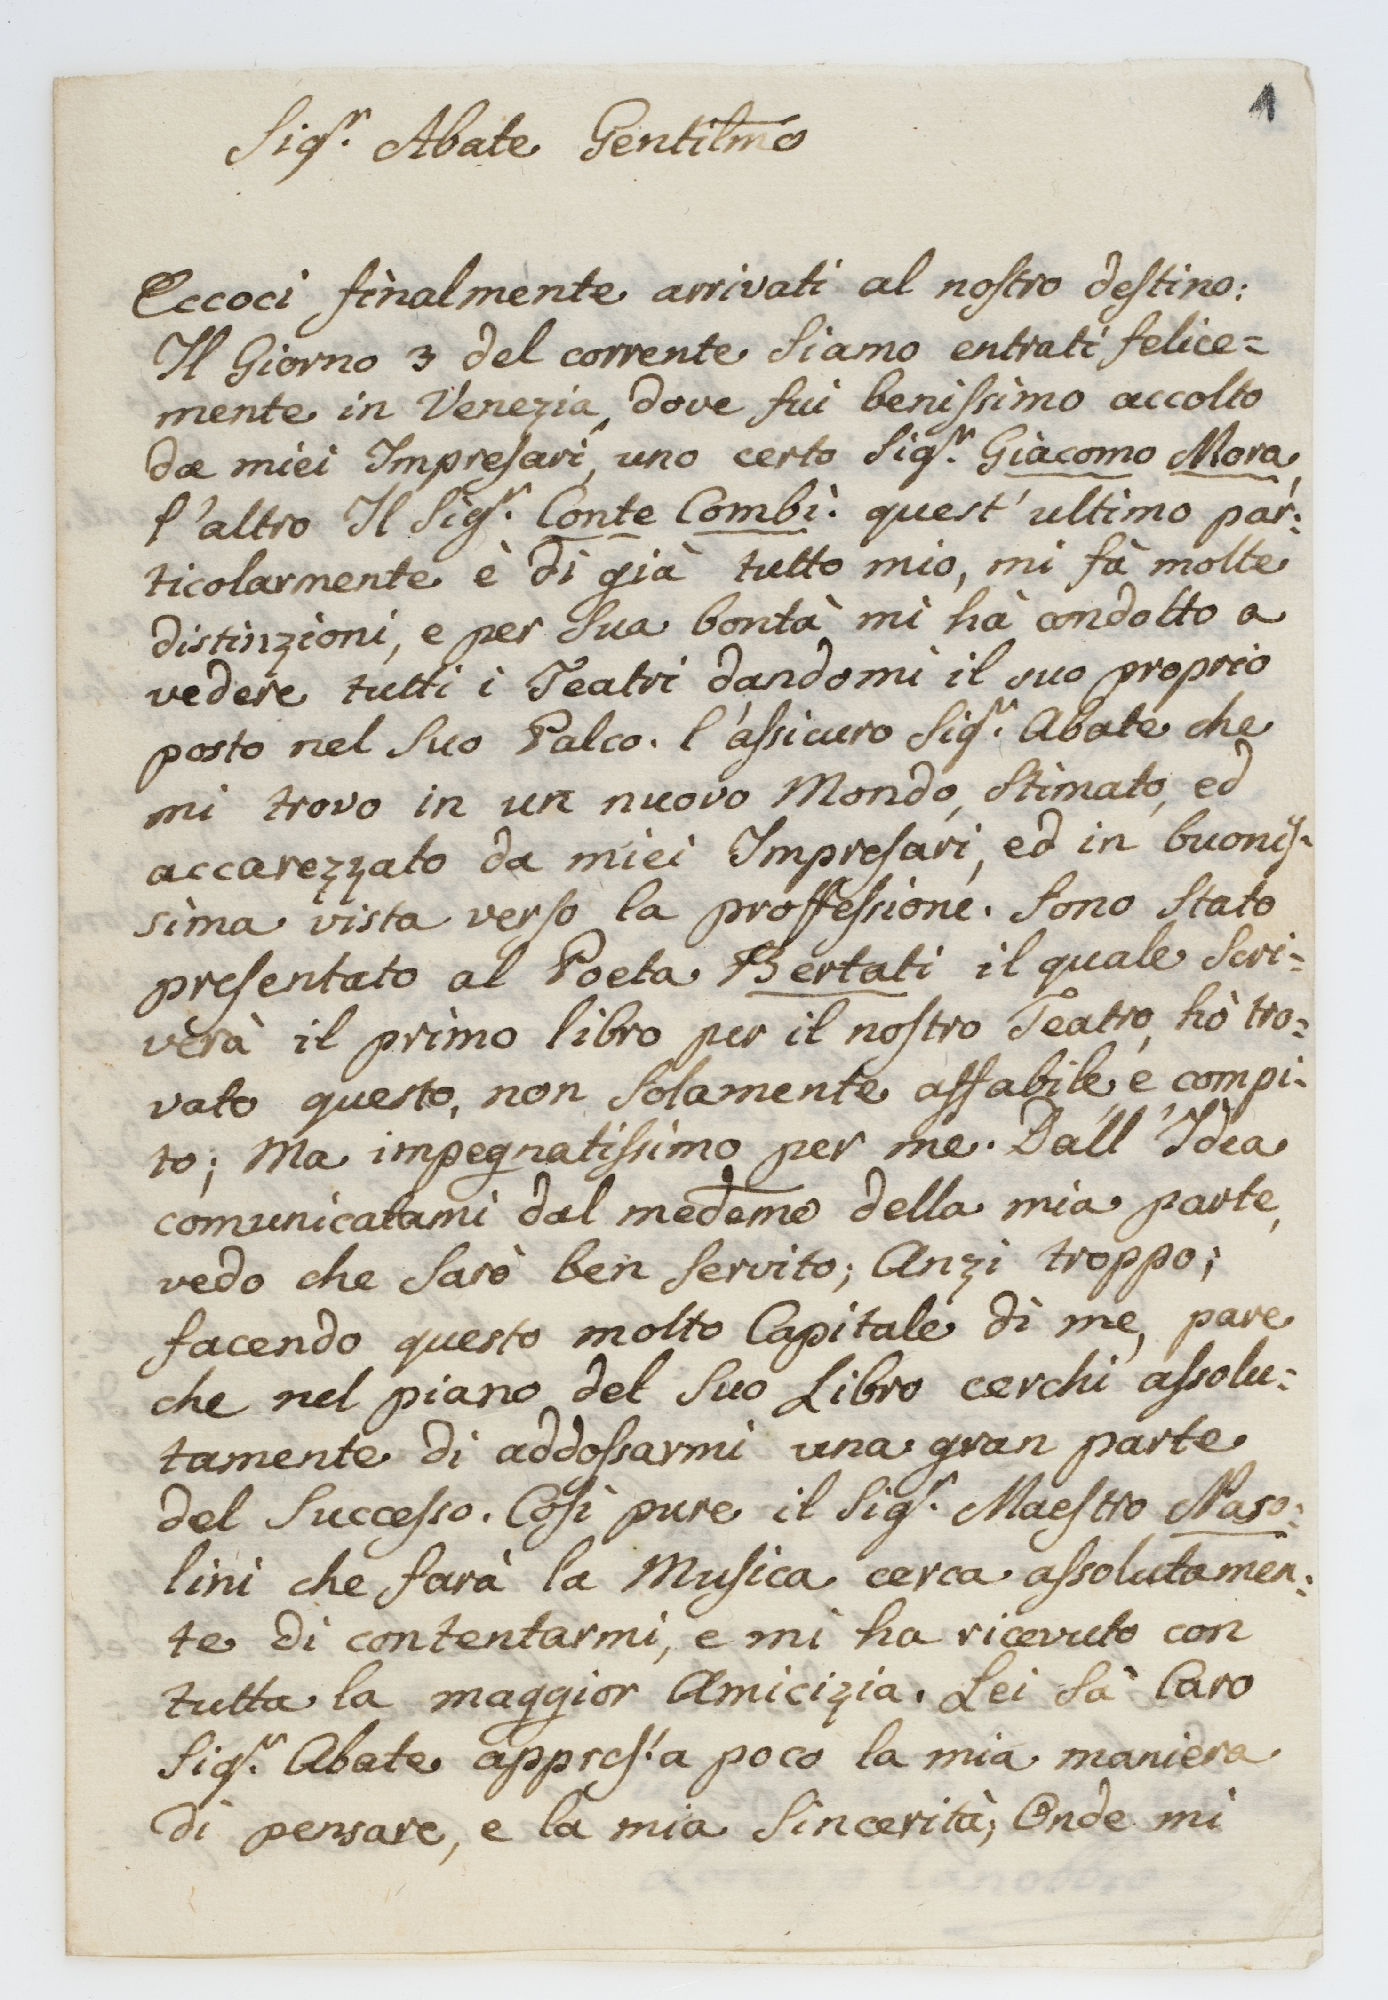 1
Sigr. Abate Gentilmo
Eccoci finalmente arrivati al nostro destino:
Il Giorno 3 del corrente Siamo entrati felice=
mente in Venezia, dove fui benissimo accolto
da miei Impresari, uno certo Sigr. Giacomo Mora,
l'altro Il Sigr. Conte Combi. quest' ultimo par=
ticolarmente è di già tutto mio, mi fà molte
distinzioni, e per Sua bontà mi hà condotto a
vedere tutti i Teatri dandomi il suo proprio
posto nel Suo Palco. l'assicuro Sigr. Abate che
mi trovo in un nuovo Mondo, Stimato, ed
accarezzato da miei Impresari, ed in buonis=
sima vista verso la proffessione. Sono Stato
presentato al Poeta Bertati il quale Scri=
verà il primo libro per il nostro Teatro, hò tro=
vato questo, non Solamente affabile, e compi=
to; Ma impegnatissimo per me. Dall' Idea
comunicatami dal medemo della mia parte,
vedo che Sarò ben Servito; Anzi troppo;
facendo questo molto Capitale di me, pare
che nel piano del Suo Libro cerchi assolu=
tamente di addossarmi una gran parte
del Successo. Così pure il Sigr. Maestro Naso=
lini che farà la Musica cerca assolutamen=
te di contentarmi, e mi ha ricevuto con
tutta la maggior Amicizia. Lei Sà Caro
Sigr. Abate appres'a poco la mia maniera
di pensare, e la mia Sincerità; Onde mi